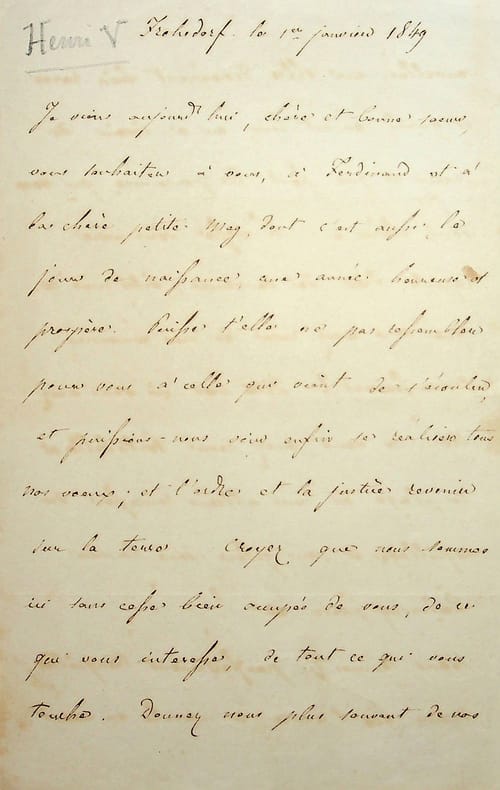 Henri V
Frohsdorf. le 1er janvier 1849
Je viens aujourd'hui, chère et bonne soeur,
vous souhaiter à vous, à Ferdinand et à
la chère petite Meg, dont c'est aussi le
jour de naissance, une année heureuse et
prospère. Puisse t'elle ne pas ressembler
pour vous à celle qui vient de s'écouler,
et puissions-nous voir enfin se réaliser tous
nos voeux, et l'ordre et la justice revenir
sur la terre Croyez que nous sommes
ici sans cesse bien occupés de vous, de ce
qui vous interesse, de tout ce qui vous
touche. Donnez nous plus souvent de vos